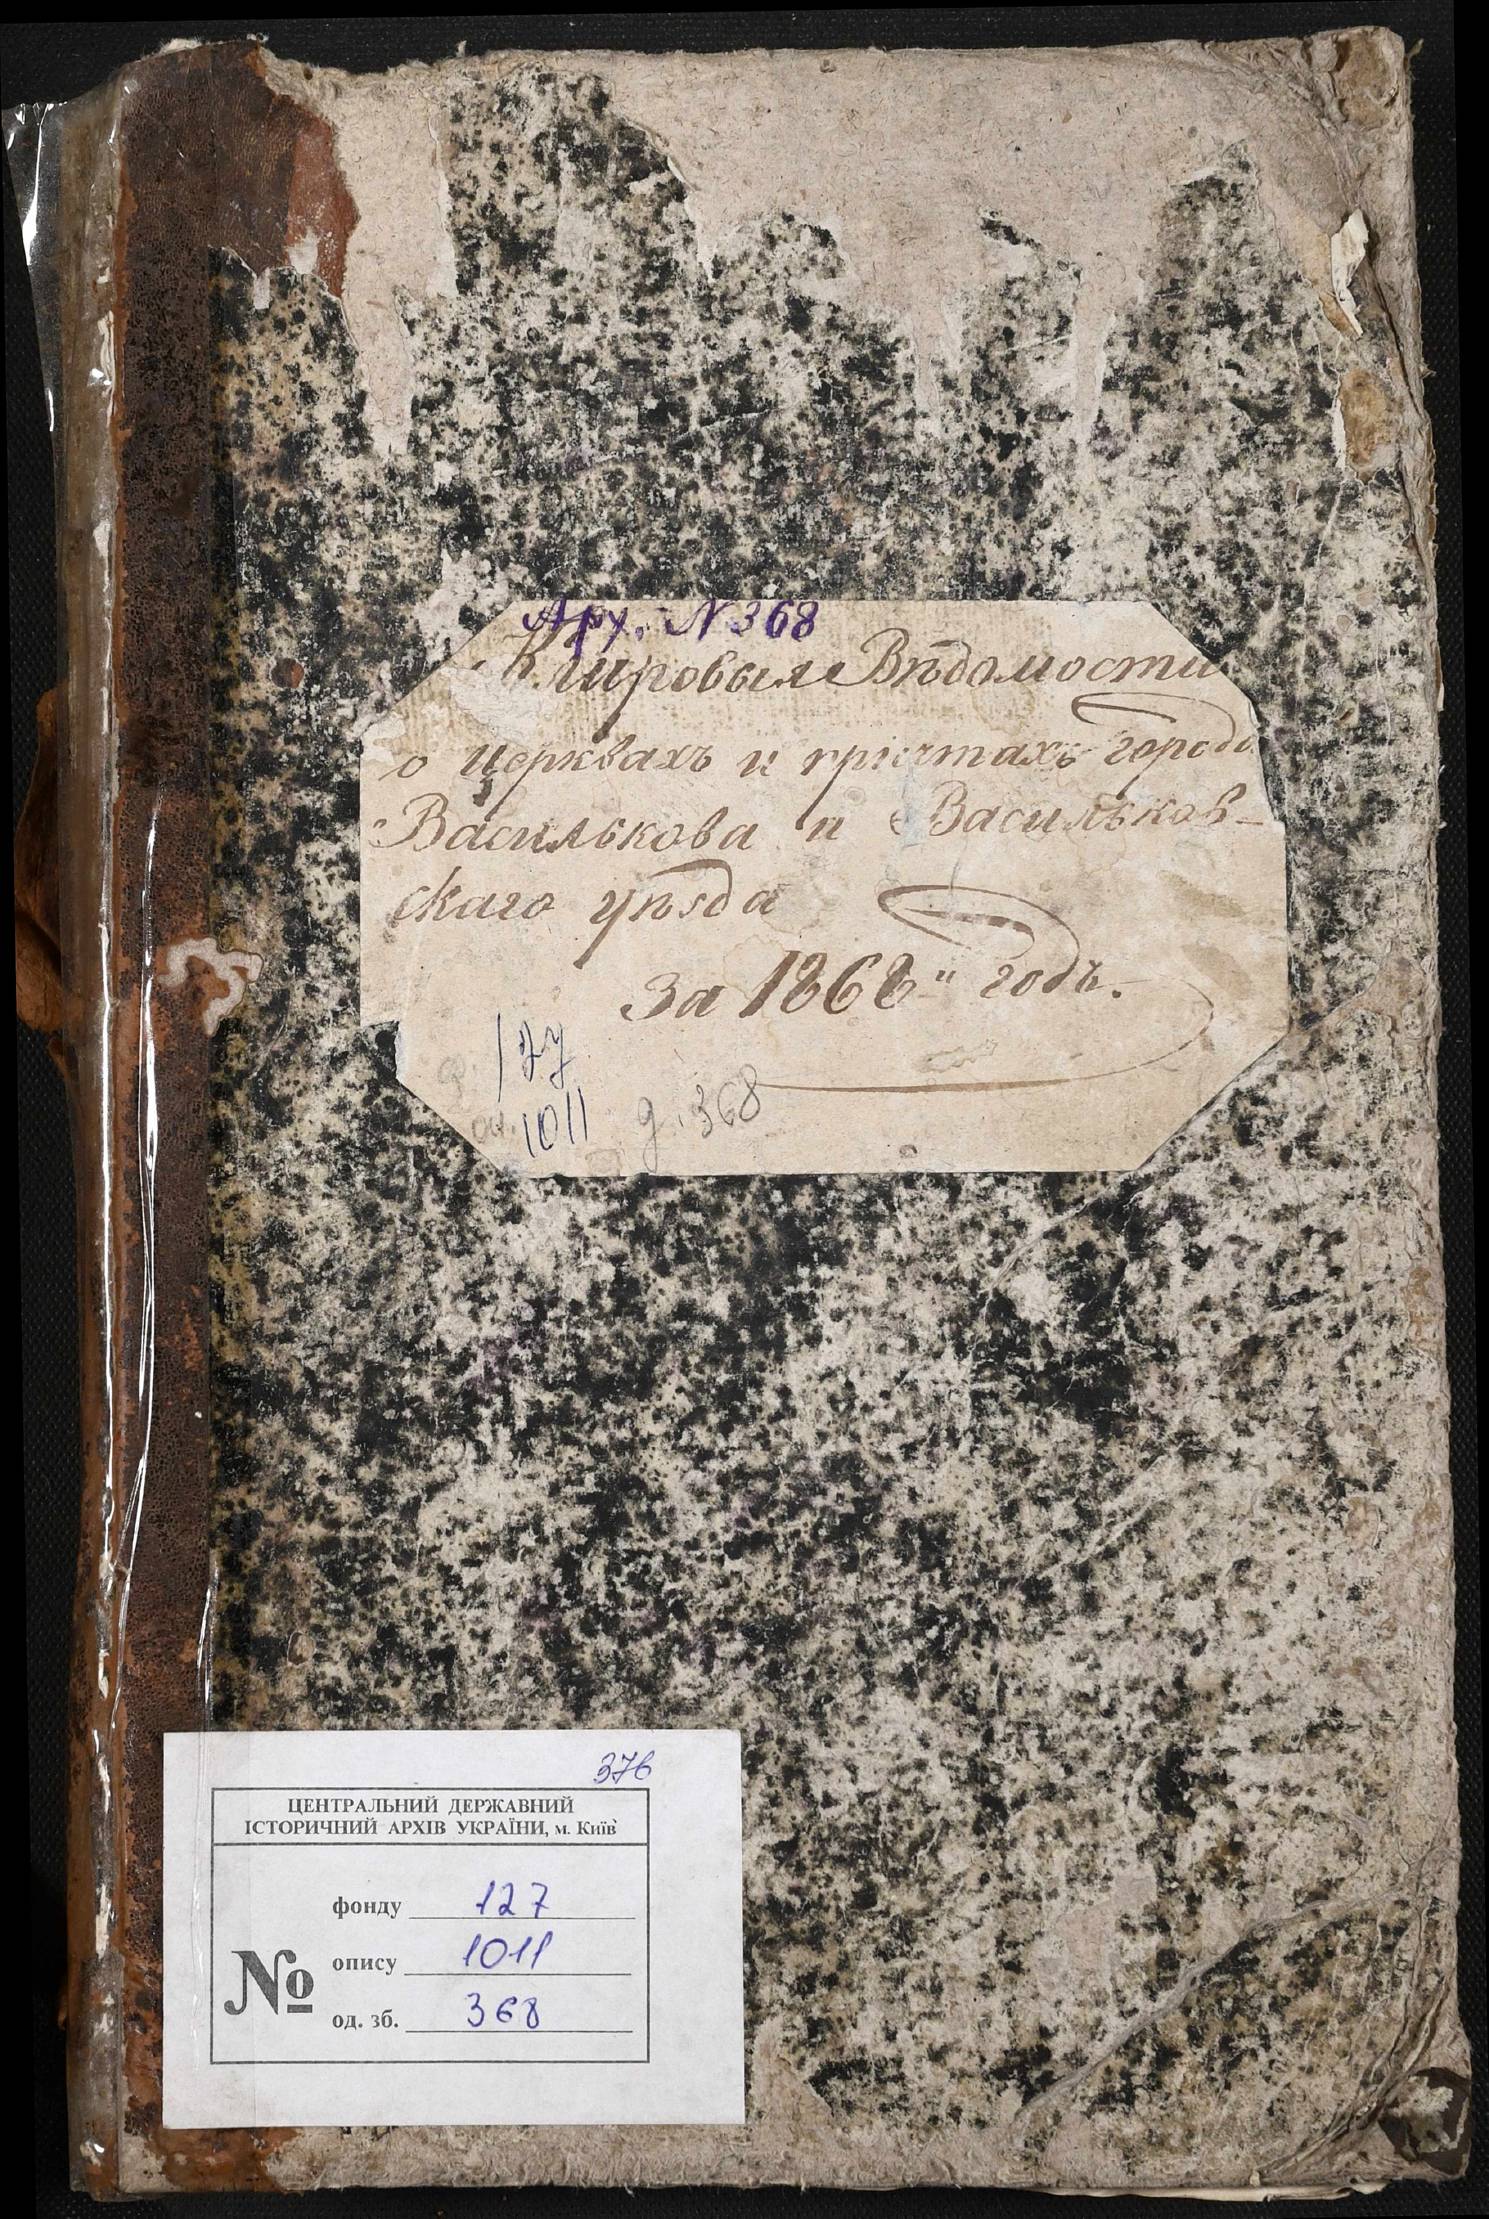 Арх. № 368
Клировыя Вѣдомости
о церквахъ и причтахъ города
Василькова и Васильков-
скаго уѣзда
за 1868 годъ.
127
оп. 1011 д. 368
376
ЦЕНТРАЛЬНИЙ ДЕРЖАВНИЙ
ІСТОРИЧНИЙ АРХІВ УКРАЇНИ, м. Київ
фонду 127
№ опису 1011
од. зб. 368